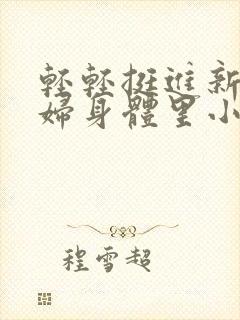 輕輕挺進新
婦身體里小
程雪超